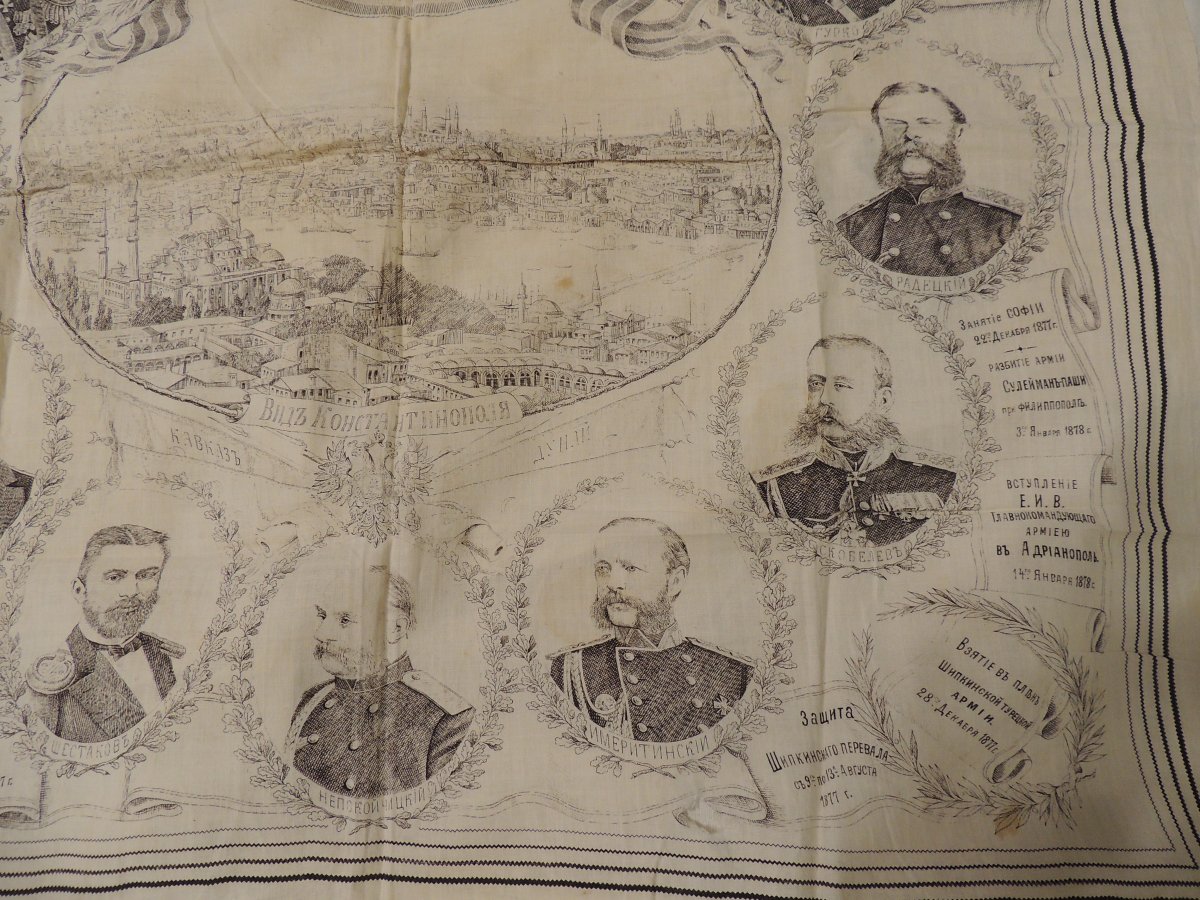 ГУРКО
РАДЕЦКІЙ
Занятіе СОФІИ
22го Декабря 1877г.
РАЗБИТІЕ АРМІИ
Сулейманъ-паши
при ФИЛИППОПОЛѢ
3го Января 1878 г.
Видъ Константинополя
КАВКАЗЪ
ДУНАЙ
СКОБЕЛЕВЪ
ВСТУПЛЕНІЕ
Е. И. В.
Главнокомандующаго
АРМІЕЮ
въ Адріанополь
14го Января 1878 г
ШЕСТАКОВЪ
НЕПОКОЙЧИЦКІЙ
ИМЕРИТИНСКІЙ
Защита
Шипкинскаго перевала
съ 9го по 13е Августа
1877 г.
Взятіе въ плѣнъ
Шипкинской турецкой
АРМІИ
28го Декабря 1877г.
7г.